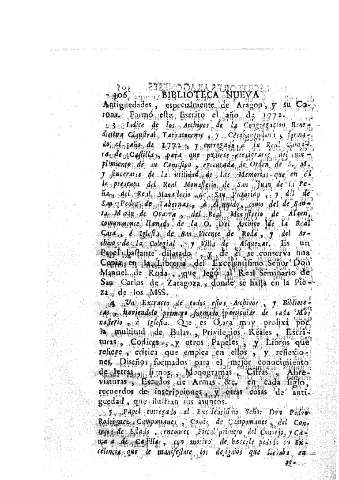 306 BIBLIOTECA NUEVA
Antiguedades, especialmente de Aragon, y su Co-
rona. Formó este Escrito el año de 1772.
3 Indice de los Archivos de la Congregacion Bene-
dictina Claustral, Tarraconense, y Cesaraugustana, forma-
do el año de 1771, y entregado á su Real Cama-
ra de Castilla, para que
plimiento de su Comision, encantada de Orden de S. M.
y sincerata de la utilidad de las Memorias que en él
la presenta del Real Monasterio de San Juan de la Pe-
ña, del Real Monasterio de San y del de
San Pedro de Tabernas, á él unido, como del de Santa
Maria de Obarra, del Real Monasterio de Alaon,
comunmente llamado de la O, Del Archivo de la Real
Casa, é Iglesia de San Vicente de Roda, y del Ar-
chivo de la Colegial, y Villa de Alquezar. Es un
Papel bastante dilatado, y de él se conserva una
Copia en la Libreria del Excelentisimo Señor Don
Manuel de Roda, que legó al Real Seminario de
San Carlos de Zaragoza, donde se halla en la Pie-
za de los MSS.
4 Un Extracto de todos estos Archivos, y Bibliote-
cas, haviendole primero formado particular de cada Mo-
nasterio, é Iglesia. Que es Obra muy prolixa por
la multitud de Bulas, Privilegios Reales, Escri-
turas, Codices, y otros Papeles, y Libros que
refiere, critica que emplea en ellos, y reflexio-
nes, Diseños formados para el mejor conocimiento
de letras, signos, Monogramas, Cifras, Abre-
viaturas, Escudos de Armas &c. en cada siglo,
recuerdos de inscripciones, y otras cosas de anti-
guedad, que ilustran sus asuntos.
5 Papel entregado al Excelentisimo Señor Don Pedro
Rodriguez Campomanes, Conde de Campomanes, del Con-
sejo de Estado, entonces Fiscal primero del Consejo, y Ca-
mara de Castilla, con motivo de haverle pedido su Ex-
celencia que le manifestase los designios que llevaba en